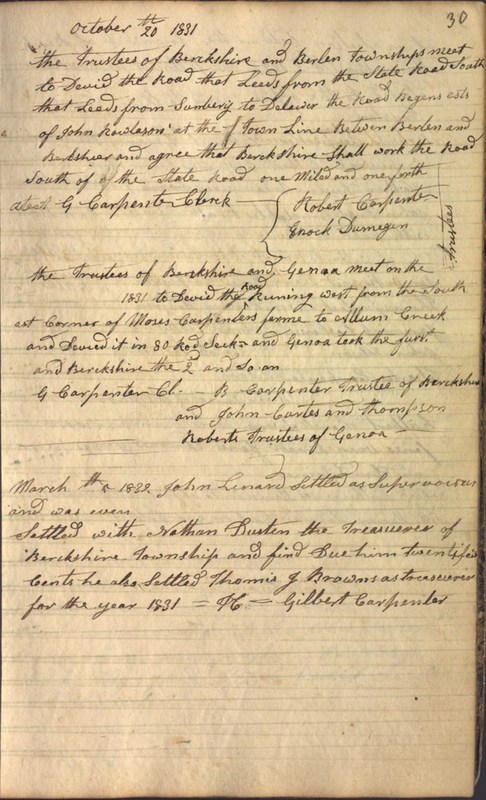 30
October 20th 1831
the Trustees of Berckshire and Berlen Townships meet
to Devid the Road that Leeds from the State Road South
that Leeds from Sunbery to Delewer the Road Begens
of John Rowleson at the Town Line Betwen Berlen and
and agree that Berckshire Shall work the Road
South of of the State Road one Miled and one forth
G Carpenter Clerck Robert Carpenter
Enock Dumegen
Trustees
the Trustees of Berckshire and Genoa meet on the
1831 to Devid the Road Runing west from the South
est Corner of Moses Carpenders ferme to Allum Creek
and Devied it in 80 Rod and Genoa took the furst
and Berckshire the 2 and So on
G Carpenter Cl. B Carpenter Trustee of Berckshire
and John Curtes and Thompson
Roberts Trustees of Genoa
March th 5 1832 John Lenard Settled as
and was even
Settled with Nathan Dusten the Treasuerer of
Berckshire Township and find Due him
Cents he also Settled Thomis J Browns as treasuerer
for the year 1831 = = Gilbert Carpenter